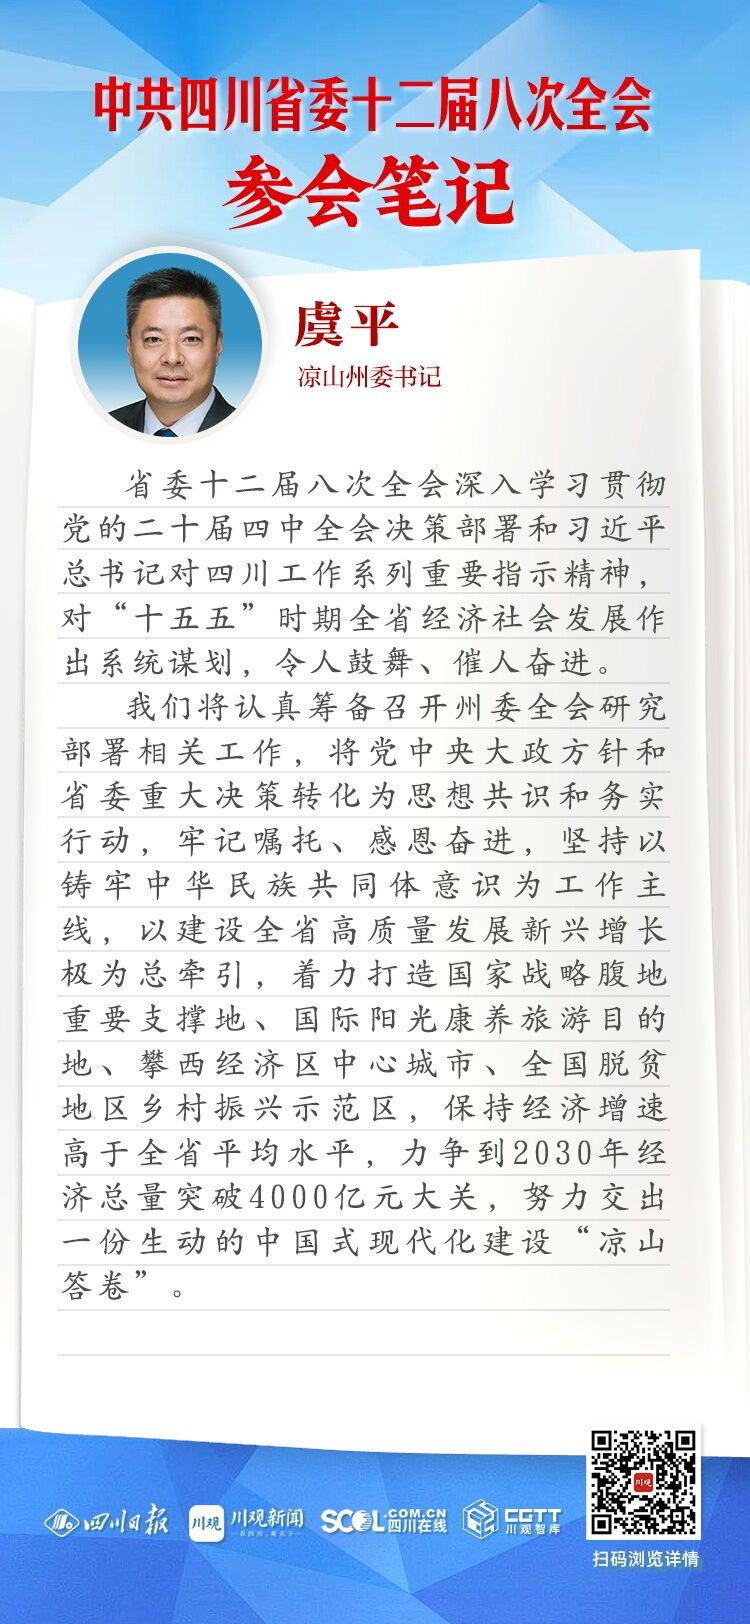 中共四川省委十二届八次全会
参会笔记
虞平
凉山州委书记
省委十二届八次全会深入学习贯彻
党的二十届四中全会决策部署和习近平
总书记对四川工作系列重要指示精神，
对“十五五”时期全省经济社会发展作
出系统谋划，令人鼓舞、催人奋进。
我们将认真筹备召开州委全会研究
部署相关工作，将党中央大政方针和
省委重大决策转化为思想共识和务实
行动，牢记嘱托、感恩奋进，坚持以
铸牢中华民族共同体意识为工作主
线，以建设全省高质量发展新兴增长
极为总牵引，着力打造国家战略腹地
重要支撑地、国际阳光康养旅游目的
地、攀西经济区中心城市、全国脱贫
地区乡村振兴示范区，保持经济增速
高于全省平均水平，力争到2030年经
济总量突破4000亿元大关，努力交出
一份生动的中国式现代化建设“凉山
答卷”。
四川日报
川观
川观新闻
看四川，观天下
SCOL.COM.CN
四川在线
CGTT
川观智库
川观
扫码浏览详情